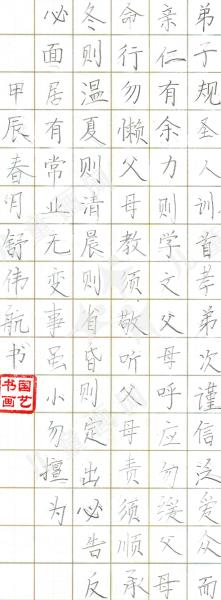 弟子规圣人训首孝弟次谨信泛爱众而
亲仁有余力则学文父母呼应勿缓父母
命行勿懒父母教须敬听父母责须顺承
冬则温夏则清晨则省昏则定出必告反
必面居有常业无变事虽小勿擅为
甲辰春月舒伟航书
国艺书画